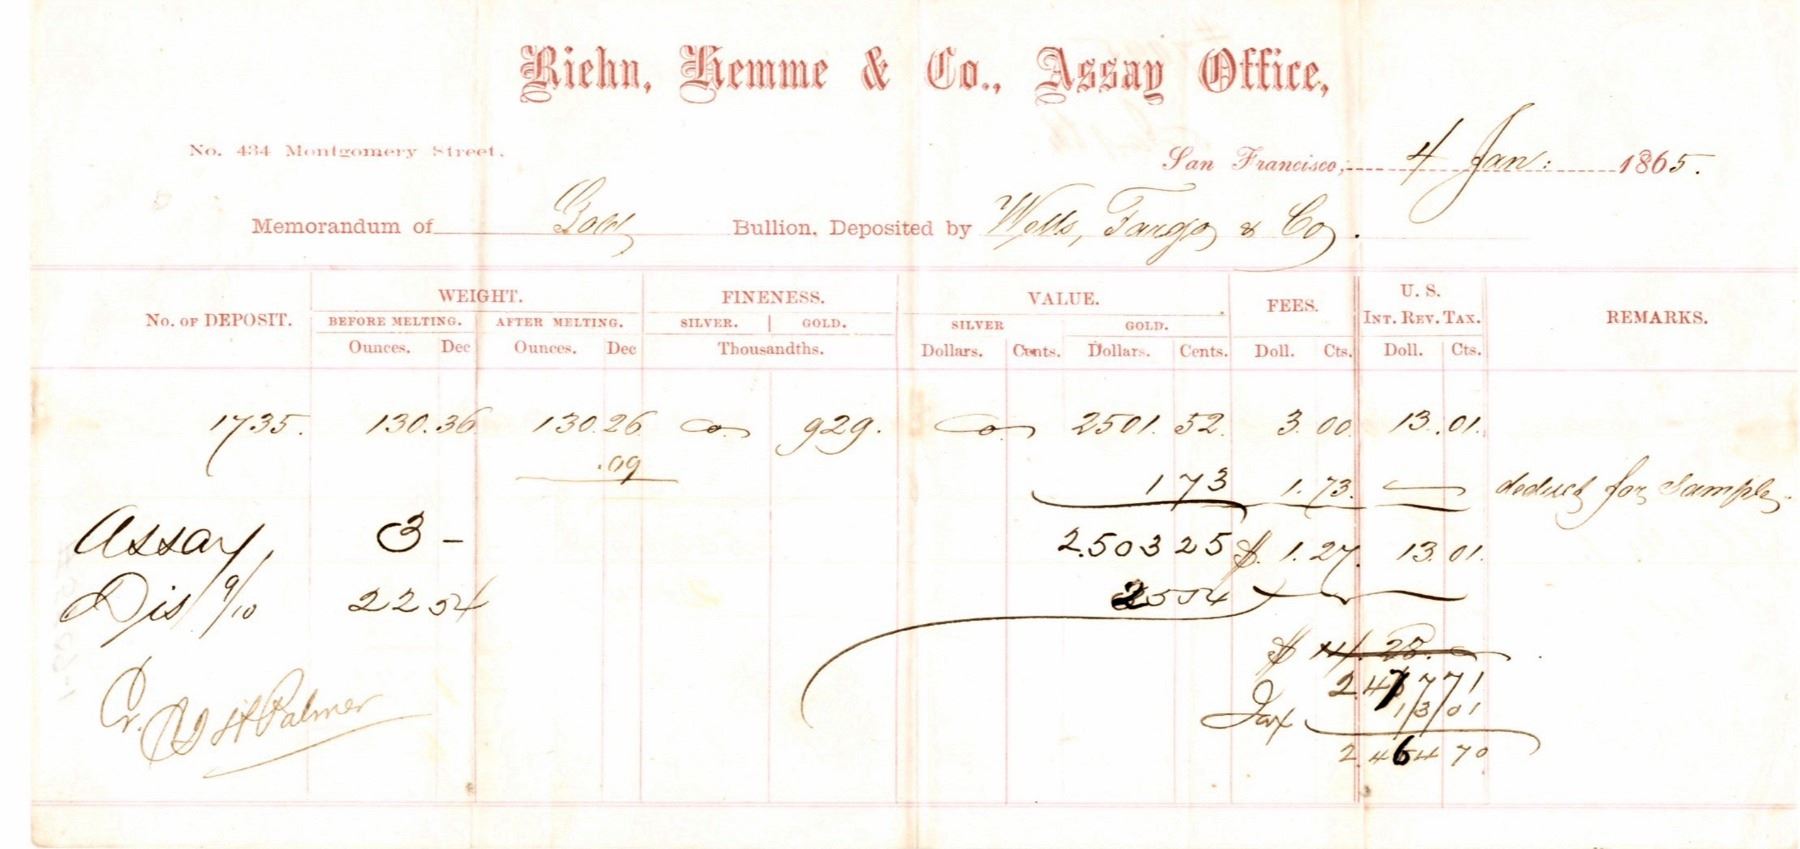 Riehn, Hemme & Co., Assay Office,
No. 434 Montgomery Street.
San Francisco, 4 Jan: 1865.
Memorandum of Gold Bullion, Deposited by Wells, Fargo & Co.
No. OF DEPOSIT. WEIGHT. FINENESS. VALUE. FEES. U. S. INT. REV. TAX. REMARKS.
BEFORE MELTING. AFTER MELTING. SILVER. GOLD. SILVER GOLD.
Ounces. Dec Ounces. Dec Thousandths. Dollars. Cents. Dollars. Cents. Doll. Cts. Doll. Cts.
1735. 130.36 130.26 o 929. o 2501. 52. 3 00 13. 01.
.09 1 73 1.73. — deduct for Sample.
Assay, 3 - 2.503 25 $ 1.27. 13 01.
Dis 9/10 22 54 25 54
$ 14. 28.
Cr. Palmer 2 47 7 71
Tax 13 01
2 464 70